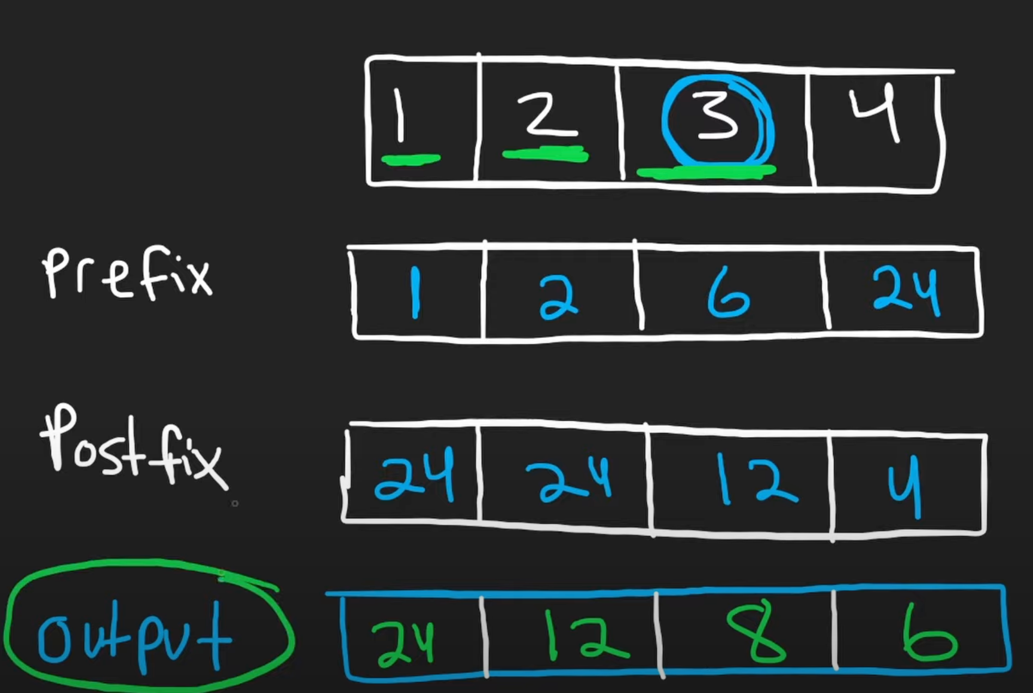 1 2 3 4
Prefix 1 2 6 24
Postfix 24 24 12 4
output 24 12 8 6